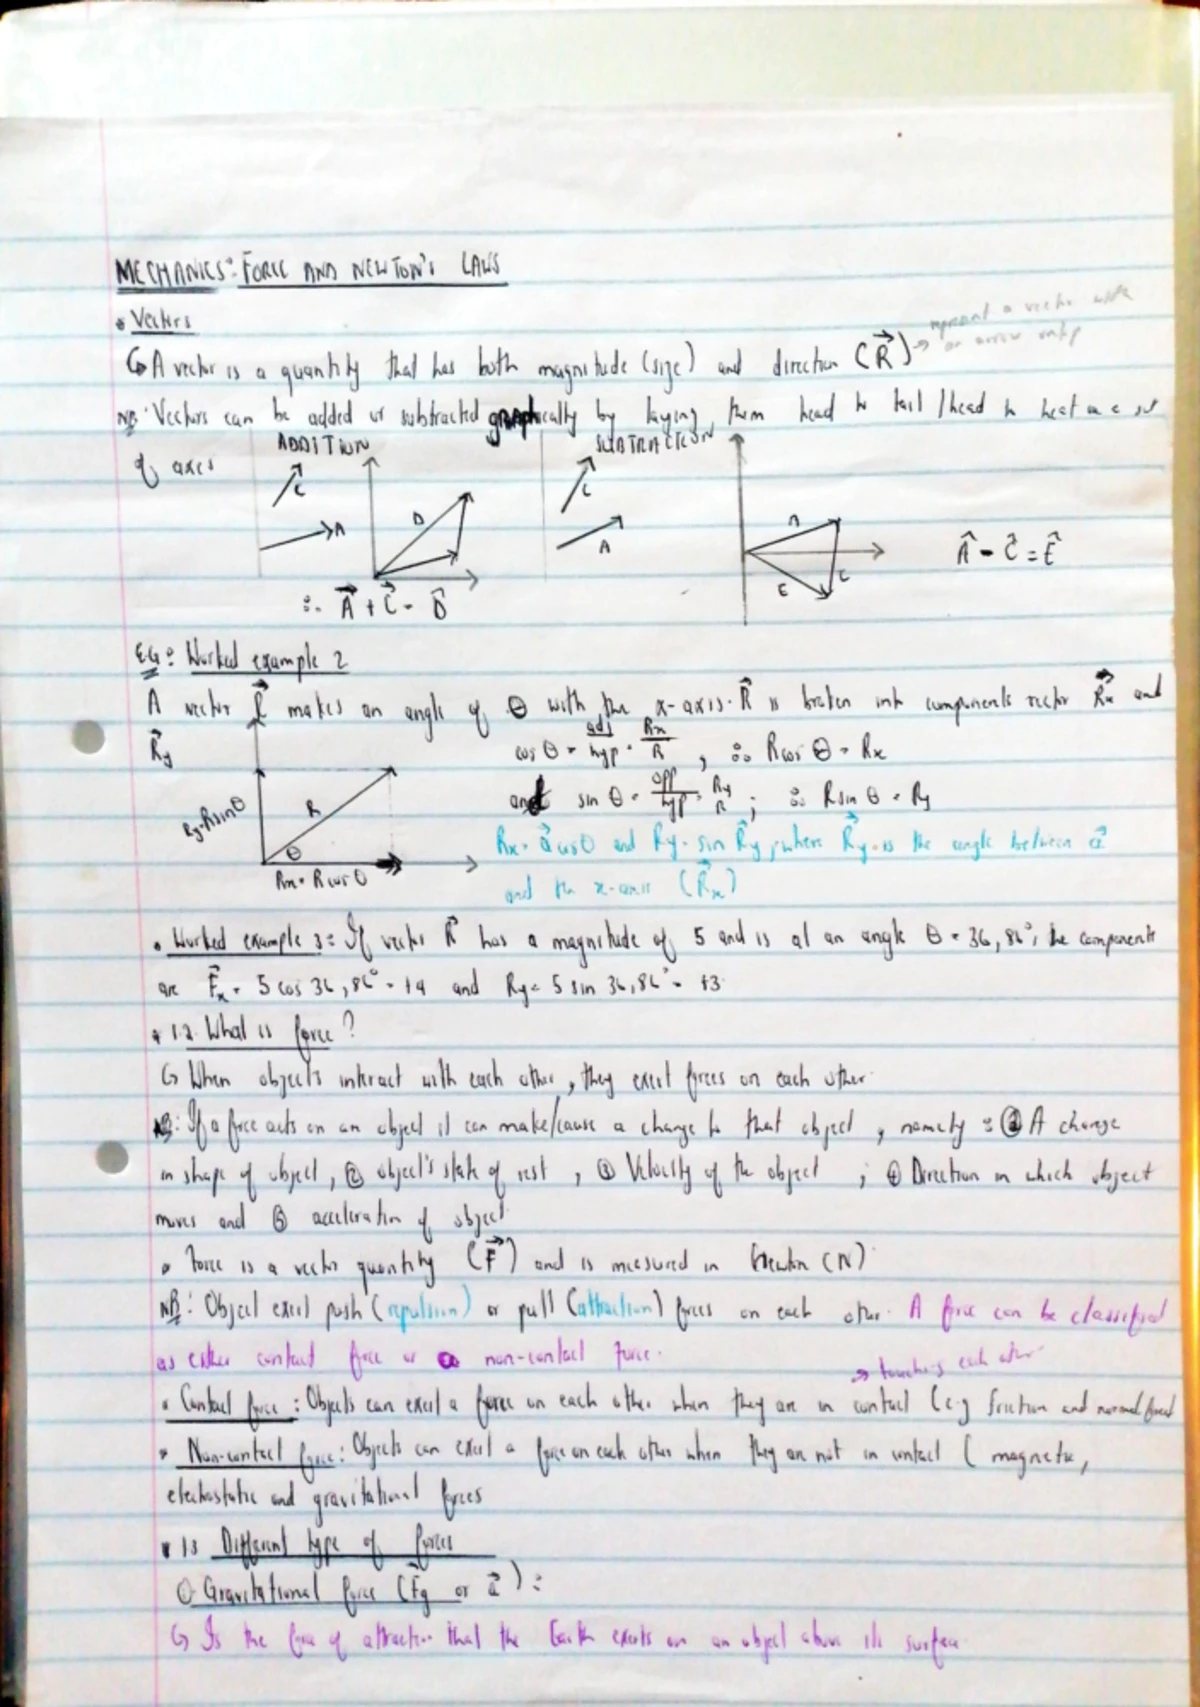 MECHANICS: FORCE AND NEWTON'S LAWS
• Vectors
↳ A vector is a quantity that has both magnitude (size) and direction (R⃗) → represent a vector with an arrow on top
NB: Vectors can be added or subtracted graphically by laying them head to tail / head to head on a set
of axes
ADDITION
SUBTRACTION
C
A
D
C
A
A
E
C
∴ A⃗ + C⃗ = D⃗
A⃗ - C⃗ = E⃗
EG: Worked example 2
A vector R⃗ makes an angle of θ with the x-axis. R⃗ is broken into components vector R⃗x and
R⃗y
cos θ = adj/hyp = Rx/R , ∴ R cos θ = Rx
and sin θ = opp/hyp = Ry/R ; ∴ R sin θ = Ry
Ry = R sin θ
R
θ
Rx = R cos θ
Rx = a⃗ cos θ and Ry = sin R⃗y, where R⃗y is the angle between a⃗
and the x-axis (R⃗x)
• Worked example 3: If vector R⃗ has a magnitude of 5 and is at an angle θ = 36,86°, the components
are F⃗x = 5 cos 36,86° = +4 and Ry = 5 sin 36,86° = +3
• 1.2. What is force?
↳ When objects interact with each other, they exert forces on each other.
NB: If a force acts on an object it can make/cause a change to that object, namely: ① A change
in shape of object, ② object's state of rest, ③ Velocity of the object ; ④ Direction in which object
moves and ⑤ acceleration of object.
• Force is a vector quantity (F⃗) and is measured in Newton (N).
NB: Object exert push (repulsion) or pull (attraction) forces on each other. A force can be classified
as either contact force or a non-contact force.
→ touching each other
• Contact force: Objects can exert a force on each other when they are in contact (e.g friction and normal force)
• Non-contact force: Objects can exert a force on each other when they are not in contact ( magnetic,
electrostatic and gravitational forces
• 1.3 Different type of forces
① Gravitational force (F⃗g or a⃗):
↳ Is the force of attraction that the Earth exerts on an object above its surface.